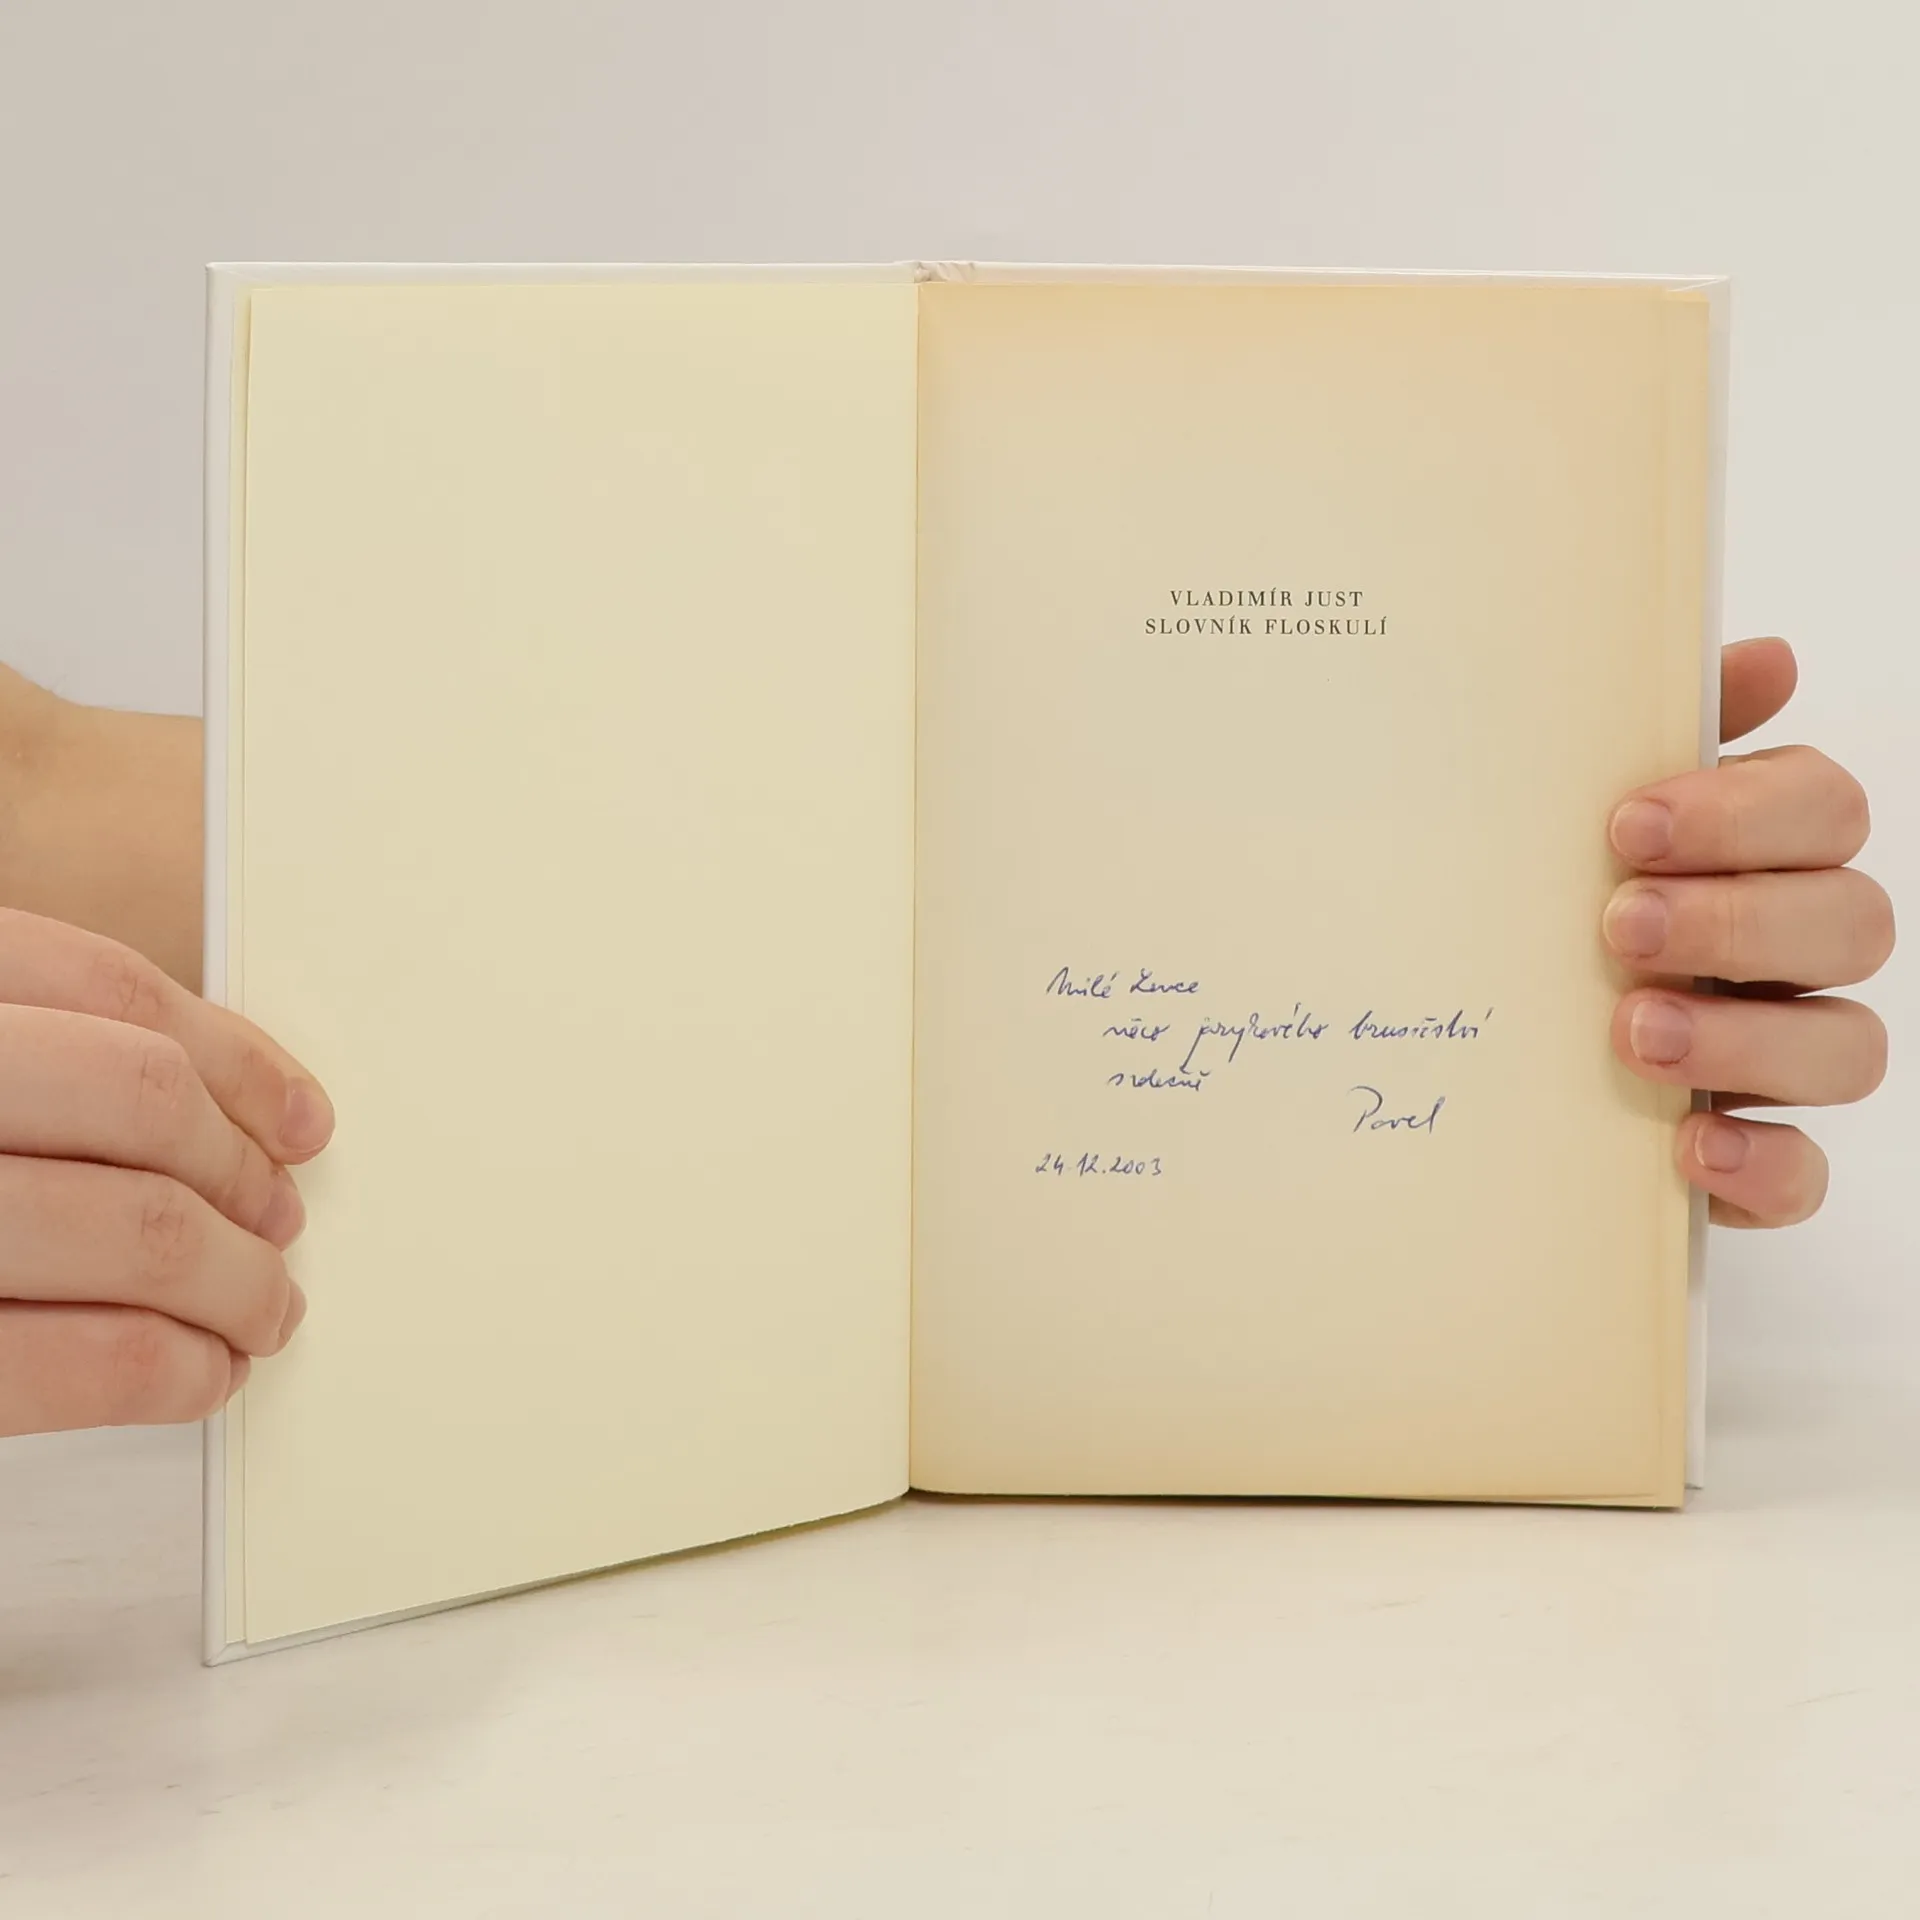 VLADIMÍR JUST
SLOVNÍK FLOSKULÍ
Milé Lence
něco jazykového brusičství
srdečně
Pavel
24.12.2003